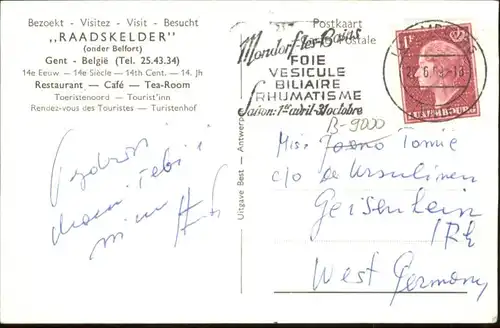 Bezoekt - Visitez - Visit - Besucht
,,RAADSKELDER''
(onder Belfort)
Gent - België (Tel. 25.43.34)
14e Eeuw — 14e Siècle — 14th Cent. — 14. Jh
Restaurant — Café — Tea-Room
Toeristenoord — Tourist'inn
Rendez-vous des Touristes — Turistenhof
Uitgave Best - Antwerpen
Postkaart
Postale
Mondorf-les-Bains
FOIE
VESICULE
BILIAIRE
RHUMATISME
Saison: 1er avril-31 octobre
1F
LUXEMBOURG
B-9000
Mis. Tomie
c/o de Ursulinen
Geisenheim
/Rh
West Germany